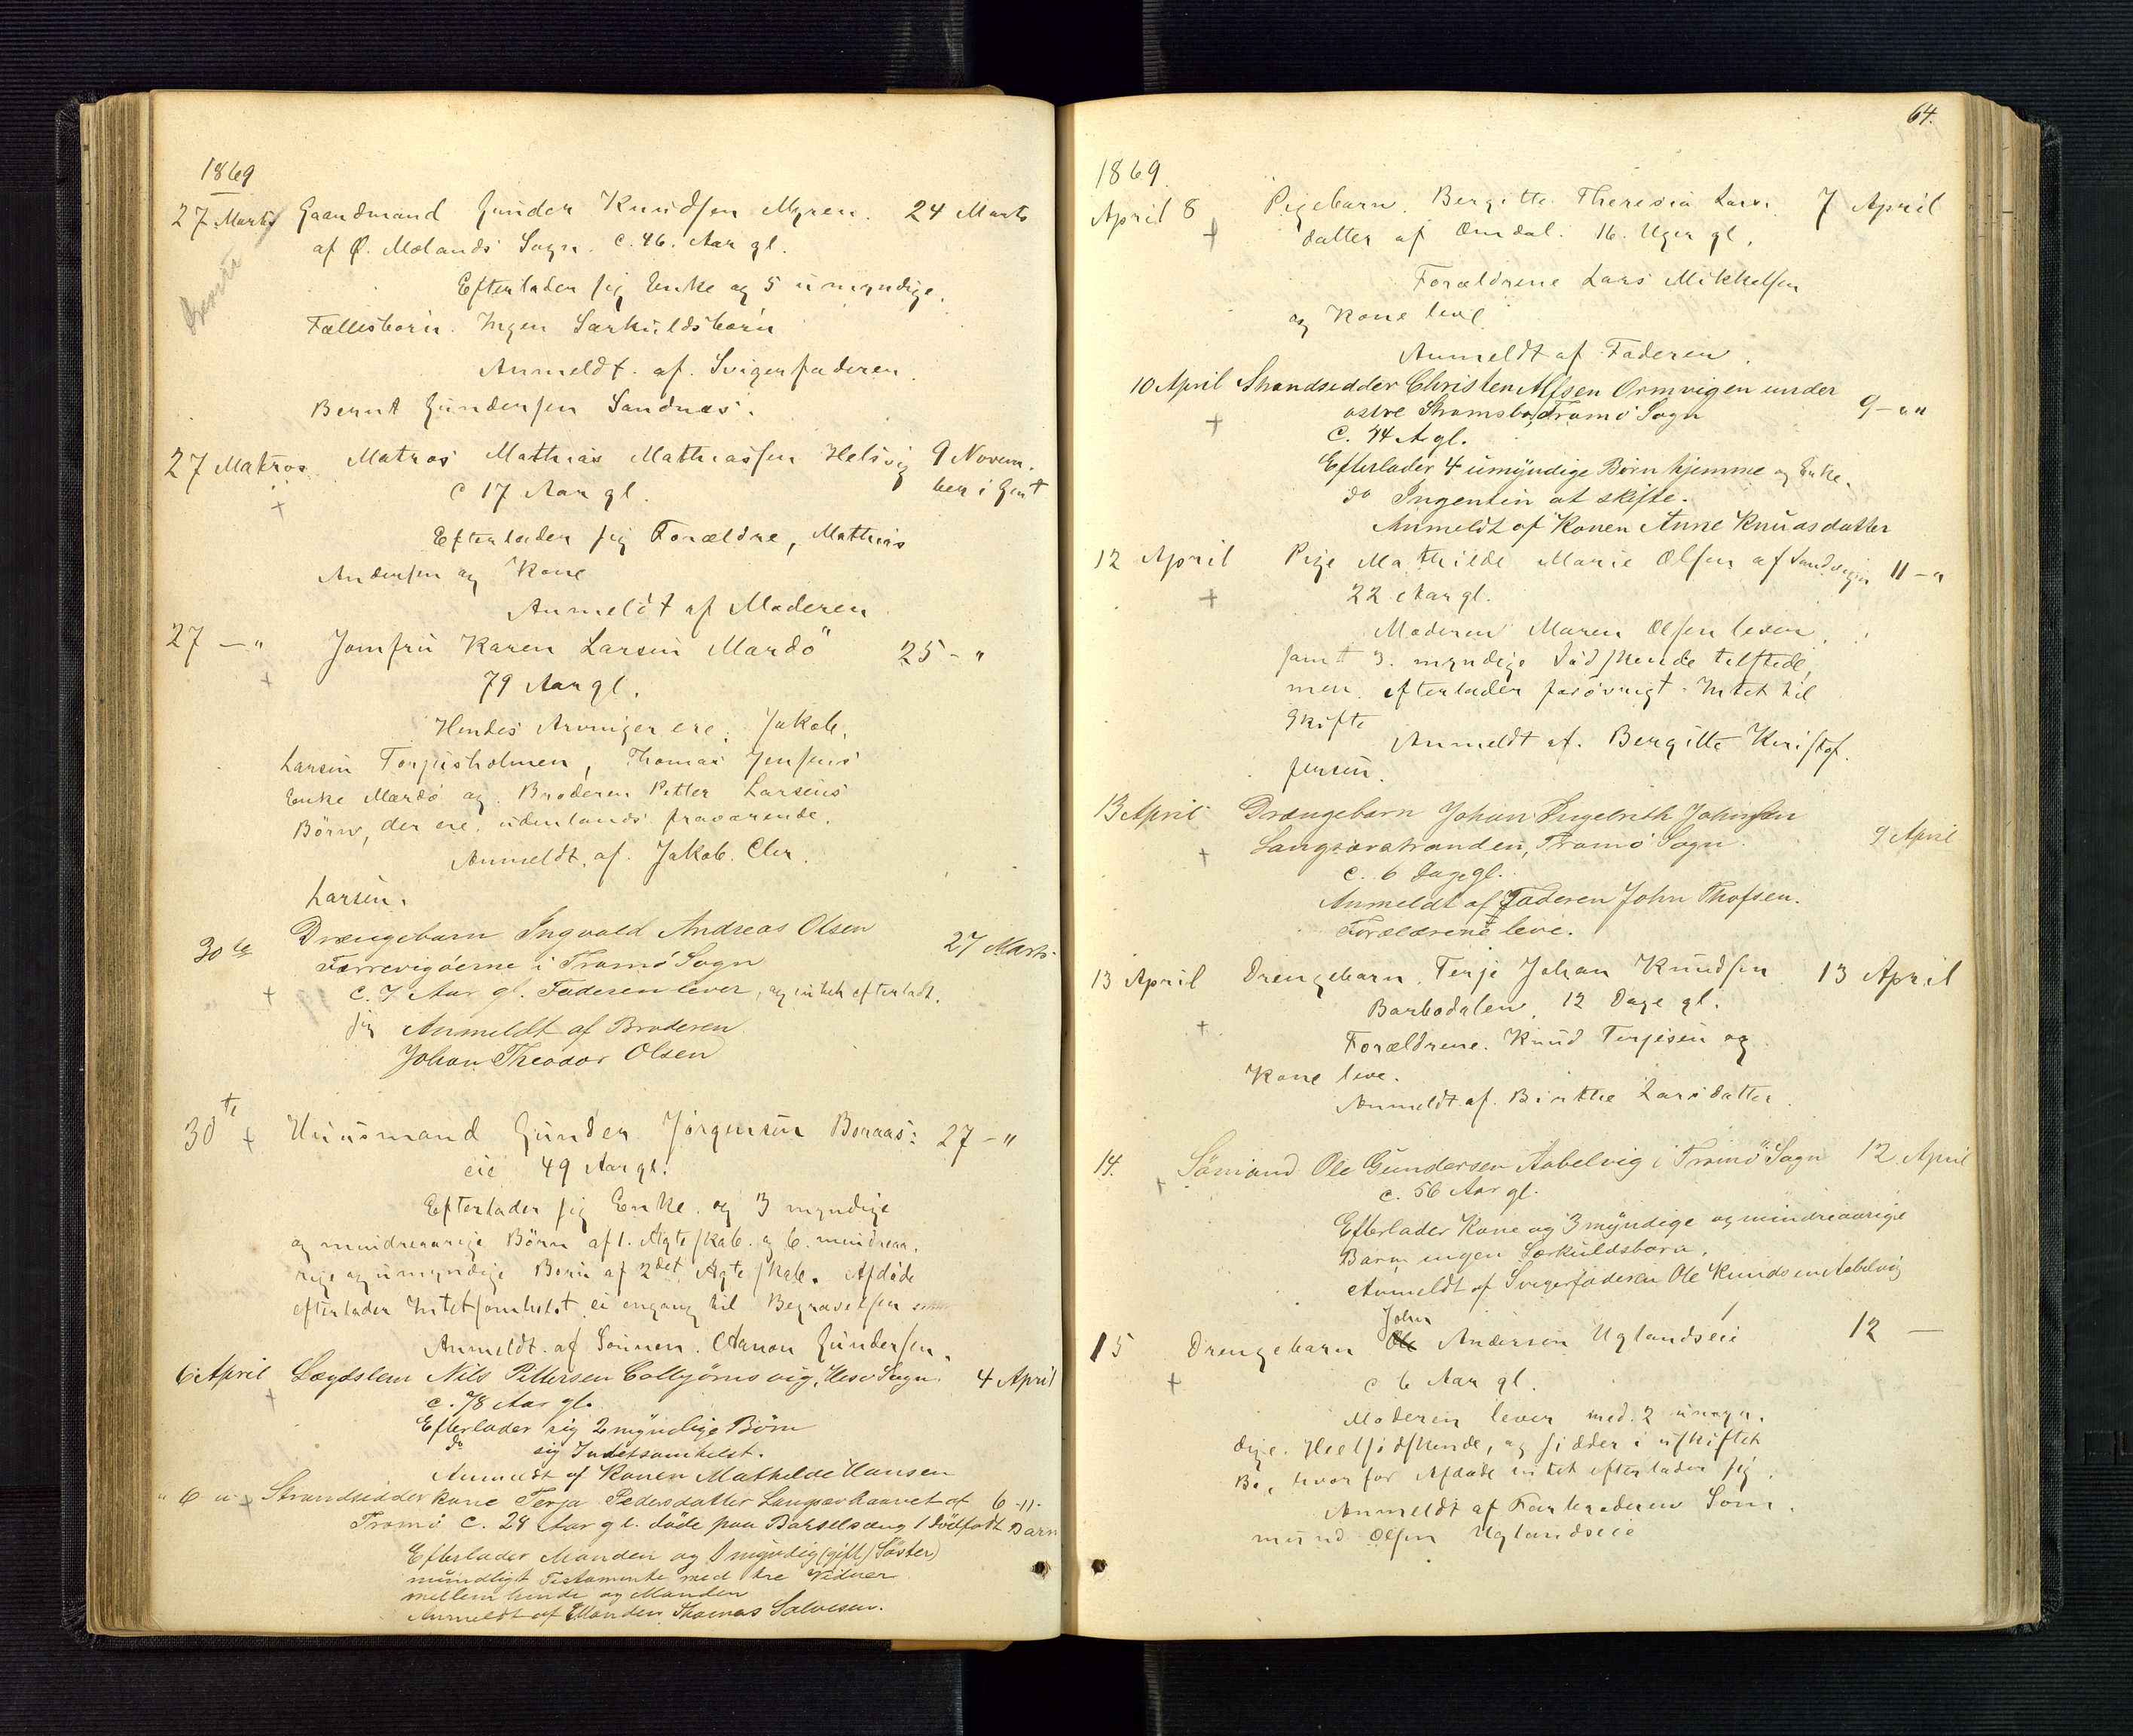 1869
27 Marts Gaardmand Gunder Knudsen Myren. 24 Marts
af Ø. Molands Sogn. C. 46. Aar gl.
Efterlader sig Enke og 5 umyndige
Fællesbørn. Ingen Særkuldsbørn
Anmeldt. af. Svigerfaderen
Bernt Gundersen Sandnæs.
27 Matros Matros Mathias Mathiassen Helsvig 9 Novem.
C 17 Aar gl. ber i Gent
Efterlader sig Forældre, Mathias
Andersen og Kone
Anmeldt af Moderen
27 — " Jomfru Karen Larsen Mærdö 25 - "
79 Aar gl.
Hendes Arvinger ere. Jakob.
Larsen Torjusholmen, Thomas Jensens
Enke Mærdö og Broderen Petter Larsens
Börn, der ere. udenlands fraværende.
Anmeldt. af. Jakob. Chr.
Larsen.
30te Drængebarn Ingvald Andreas Olsen 27 Marts
Færrevigöerne i Tromö Sogn
C. 7 Aar gl. Faderen lever, og intet efterladt.
sig Anmeldt af Broderen
Johan Theodor Olsen
30te Huusmand Gunder Jörgensen Boraas: 27 - "
eie 49 Aar gl.
Efterlader sig Enke. og 3 myndige
og mindreaarige Börn af 1. Ægteskab. og 6. mindreaa.
rige og umyndige Börn af 2det Ægteskab. Afdöde
efterlader Intetsomhelst ei engang til Begravelsen
Anmeldt. af Sönnen. Aanon Gundersen.
6 April Lægdslem Nils Pettersen Colbjörnsvig, Hisö Sogn. 4 April
C. 78 Aar gl.
Efterlader sig 2 myndige Börn
do sig Intetsomhelst.
Anmeldt af Konen Mathilde Hansen
" 6 - " Strandsidderkone Terja Pedersdatter Langsævhaavet af 6 -"-
Tromö C. 24 Aar gl. døde paa Barselseng 1 dödfødt Barn
Efterlader Manden og 1 myndig (gift) Söster
mündligt Testamente med tre Vidner
mellem hende og Manden
Anmeldt af Manden Thomas Salvesen.
64.
1869.
April 8 Pigebarn. Bergitte Theresia Lars. 7 April
datter af Omdal. 16. Uger gl.
Forældrene Lars Mikkelsen
og Kone leve
Anmeldt af Faderen.
10 April Strandsidder Christen Alfsen Ormvigen under 9 - " "
østre Strømsbo, Tromö Sogn
C. 44 A gl.
Efterlader 4 umyndige Børn hjemme og Enke.
do Ingenting at skifte.
Anmeldt af Konen Anne Knudsdatter
12 April Pige Mathilde Marie Olsen af Sandvigen 11 - "
22 Aar gl.
Moderen Maren Olsen lever
samt 3. myndige Södskende tilstede,
men efterlader forövrigt Intet til
Skifte
Anmeldt af. Bergitte Kristof.
fersen.
13 April Drængebarn Johan Ingebrith Johnsen
Langsævstranden, Tromö Sogn. 9 April
C. 6 Dage gl.
Anmeldt af Faderen John Thofsen.
Forældrene leve.
13 April Drengebarn Terje Johan Knudsen 13 April
Barbodalen 12 Dage gl.
Forældrene. Knud Terjesen og
Kone leve.
Anmeldt af. Birthe Larsdatter
14. Sömand Ole Gundersen Aabelvig i Tromö Sogn 12 April
C. 56 Aar gl.
Efterlader Kone og 3 myndige og mindreaarige
Børn ingen Særkuldsbørn.
Anmeldt af Svigerfaderen Ole Knudsen Aabelvig
John
15 Drengebarn Ole Andersen Uglandseie 12 —
C 6 Aar gl.
Moderen lever med. 2 umyn.
dige. Heelsödskende, og sidder i uskiftet
Bo, hvor for Afdöde intet efterlader sig.
Anmeldt af Farbroderen Som.
mund Olsen Uglandseie